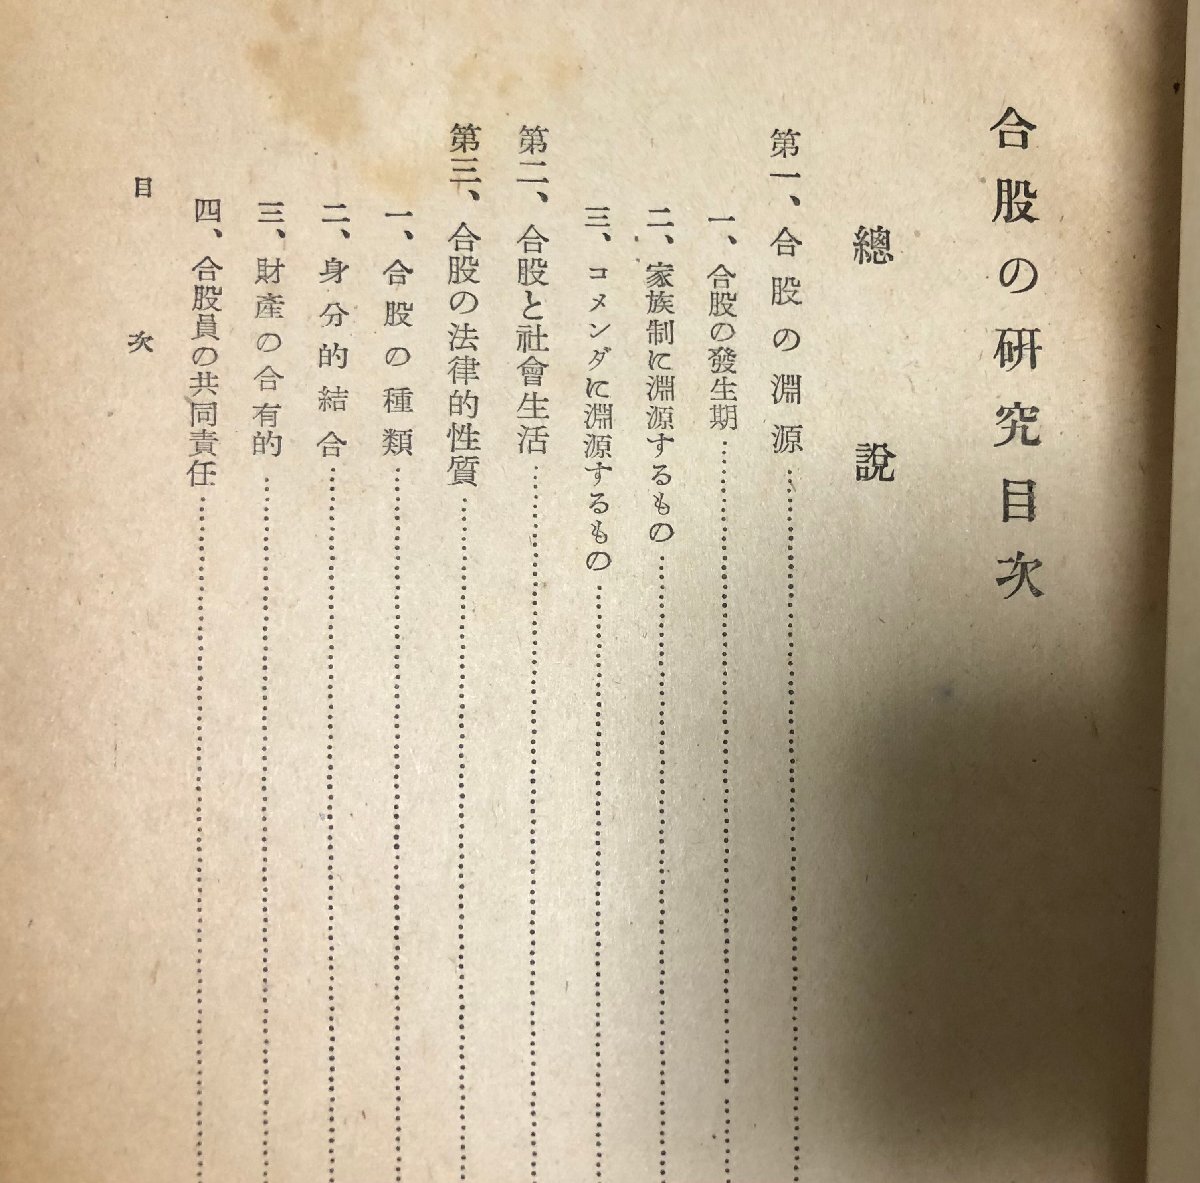 合股の研究目次
總說
第一、合股の淵源
一、合股の發生期
二、家族制に淵源するもの
三、コメンダに淵源するもの
第二、合股と社會生活
第三、合股の法律的性質
一、合股の種類
二、身分的結合
三、財產の合有的
四、合股員の共同責任
目次